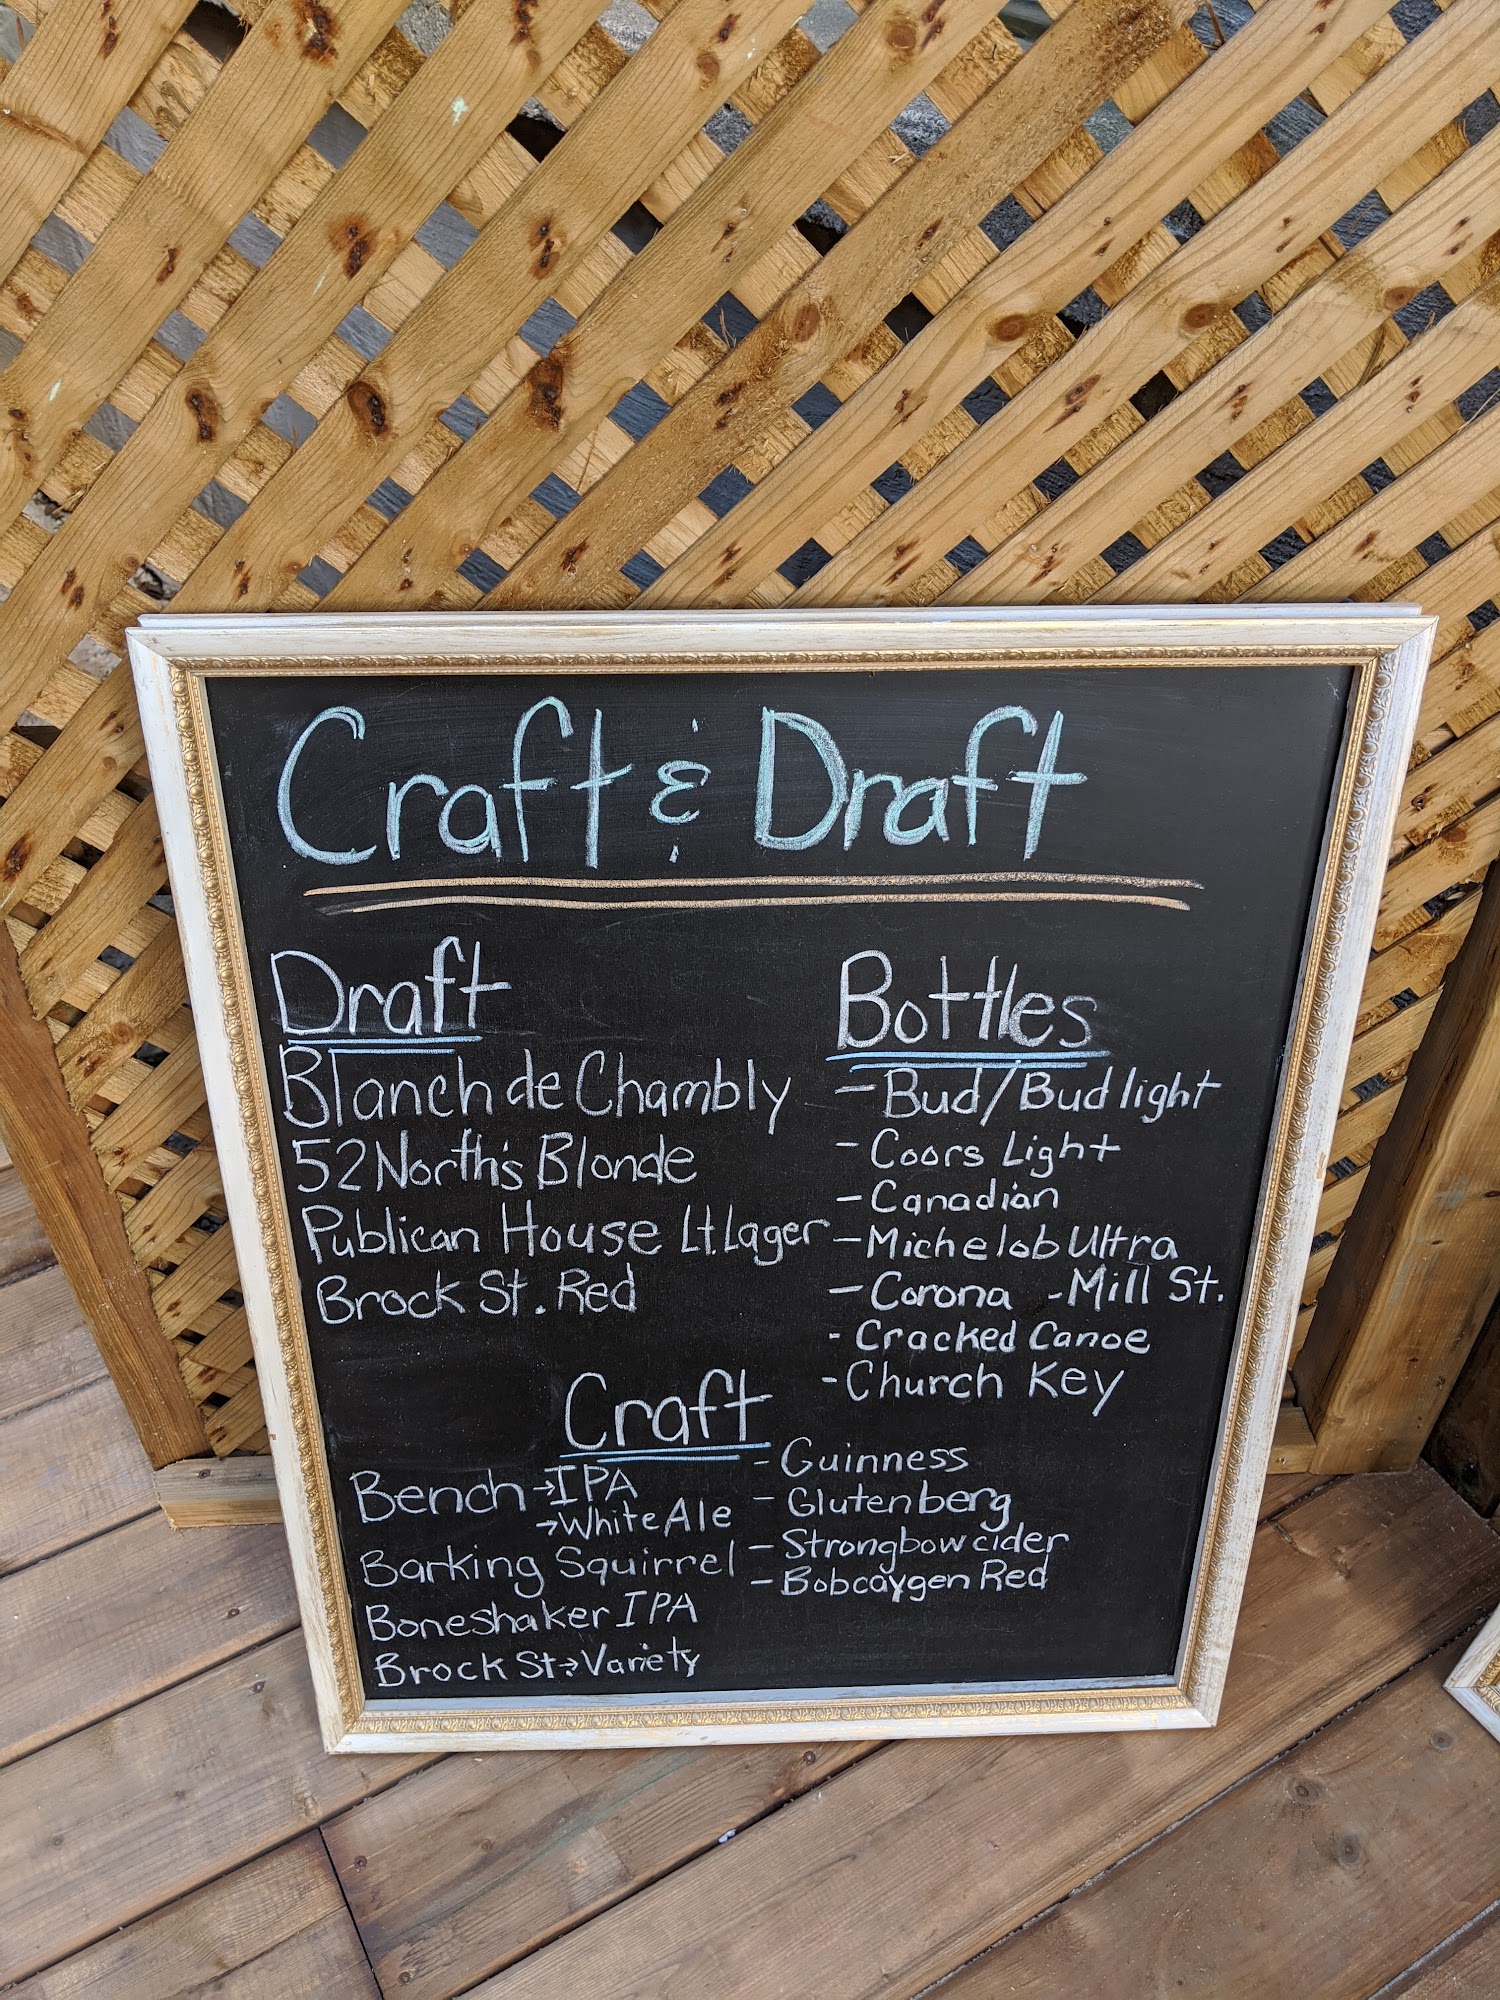 Craft & Draft
Draft
Blanch de Chambly
52 North's Blonde
Publican House Lt. Lager
Brock St. Red
Bottles
- Bud/Bud light
- Coors Light
- Canadian
- Michelob Ultra
- Corona - Mill St.
- Cracked Canoe
- Church Key
- Guinness
- Glutenberg
- Strongbow cider
- Bobcaygen Red
Craft
Bench → IPA
→ White Ale
Barking Squirrel
Boneshaker IPA
Brock St → Variety